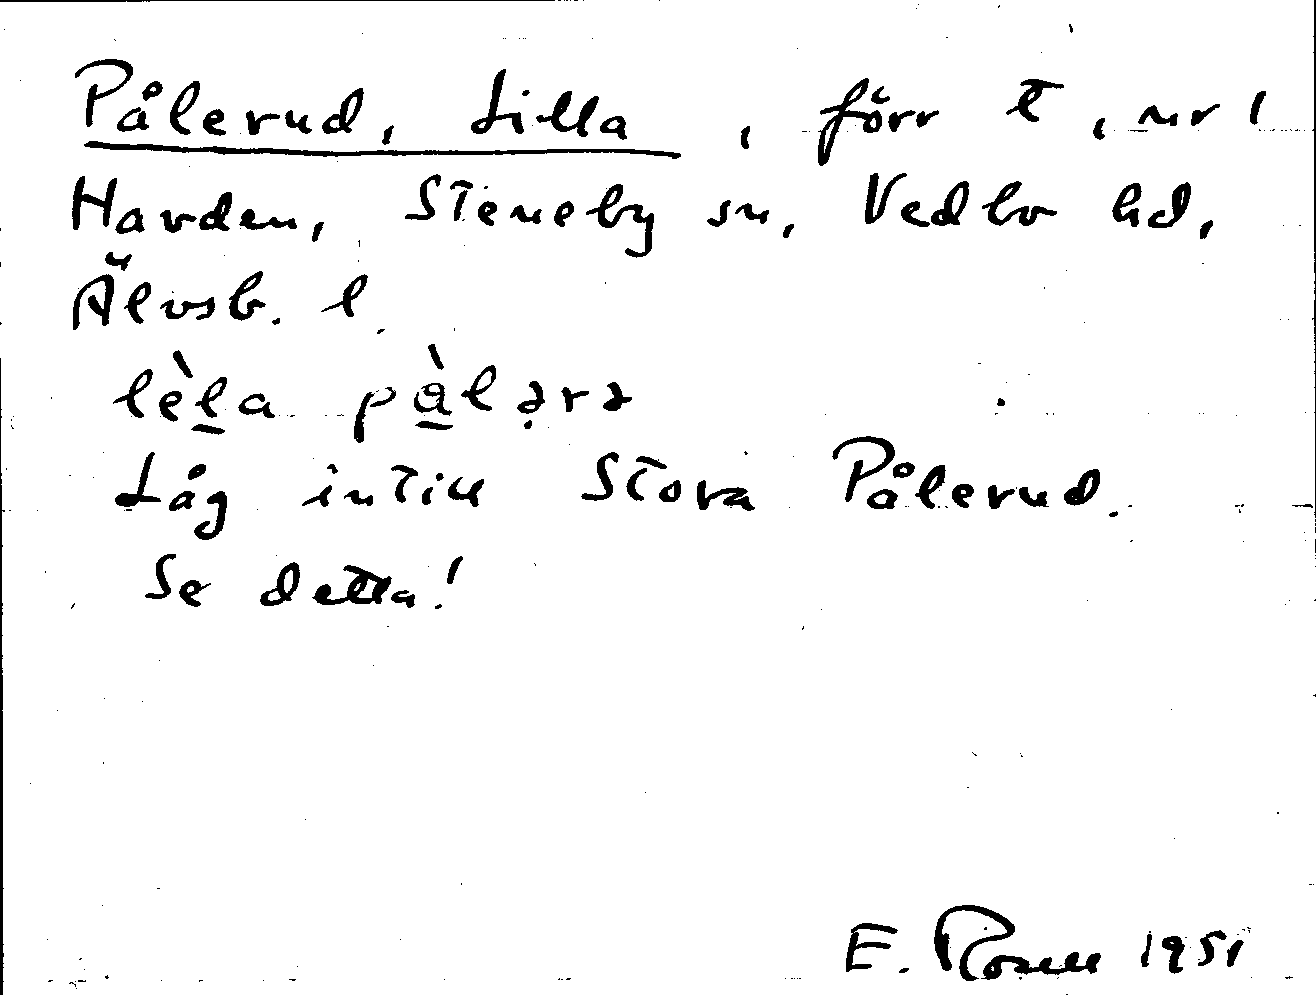 Pålerud, Lilla, förr t, nr 1
Havden, Steneby sn, Vedbo hd,
Älvsb. l.
lèla pålərə
Låg intill Stora Pålerud.
Se detta!
E. Rosell 1951